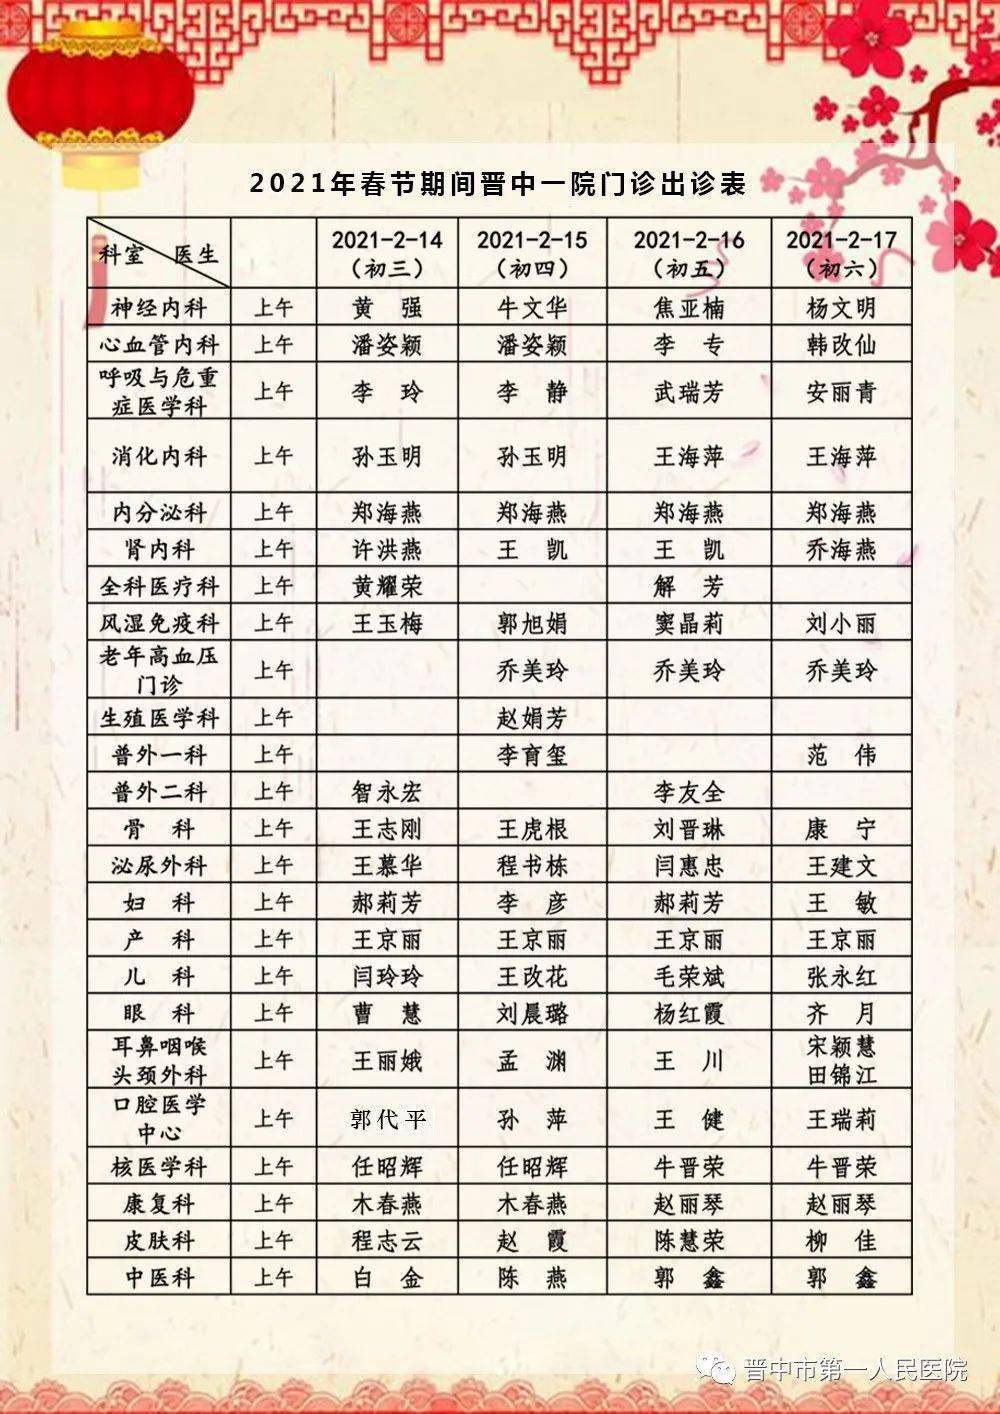 2021年春节期间晋中一院门诊出诊表
科室 医生 2021-2-14 2021-2-15 2021-2-16 2021-2-17
（初三） （初四） （初五） （初六）
神经内科 上午 黄 强 牛文华 焦亚楠 杨文明
心血管内科 上午 潘姿颖 潘姿颖 李 专 韩改仙
呼吸与危重
症医学科 上午 李 玲 李 静 武瑞芳 安丽青
消化内科 上午 孙玉明 孙玉明 王海萍 王海萍
内分泌科 上午 郑海燕 郑海燕 郑海燕 郑海燕
肾内科 上午 许洪燕 王 凯 王 凯 乔海燕
全科医疗科 上午 黄耀荣 解 芳
风湿免疫科 上午 王玉梅 郭旭娟 窦晶莉 刘小丽
老年高血压
门诊 上午 乔美玲 乔美玲 乔美玲
生殖医学科 上午 赵娟芳
普外一科 上午 李育玺 范 伟
普外二科 上午 智永宏 李友全
骨 科 上午 王志刚 王虎根 刘晋琳 康 宁
泌尿外科 上午 王慕华 程书栋 闫惠忠 王建文
妇 科 上午 郝莉芳 李 彦 郝莉芳 王 敏
产 科 上午 王京丽 王京丽 王京丽 王京丽
儿 科 上午 闫玲玲 王改花 毛荣斌 张永红
眼 科 上午 曹 慧 刘晨璐 杨红霞 齐 月
耳鼻咽喉
头颈外科 上午 王丽娥 孟 渊 王 川 宋颖慧
田锦江
口腔医学
中心 上午 郭代平 孙 萍 王 健 王瑞莉
核医学科 上午 任昭辉 任昭辉 牛晋荣 牛晋荣
康复科 上午 木春燕 木春燕 赵丽琴 赵丽琴
皮肤科 上午 程志云 赵 霞 陈慧荣 柳 佳
中医科 上午 白 金 陈 燕 郭 鑫 郭 鑫
晋中市第一人民医院